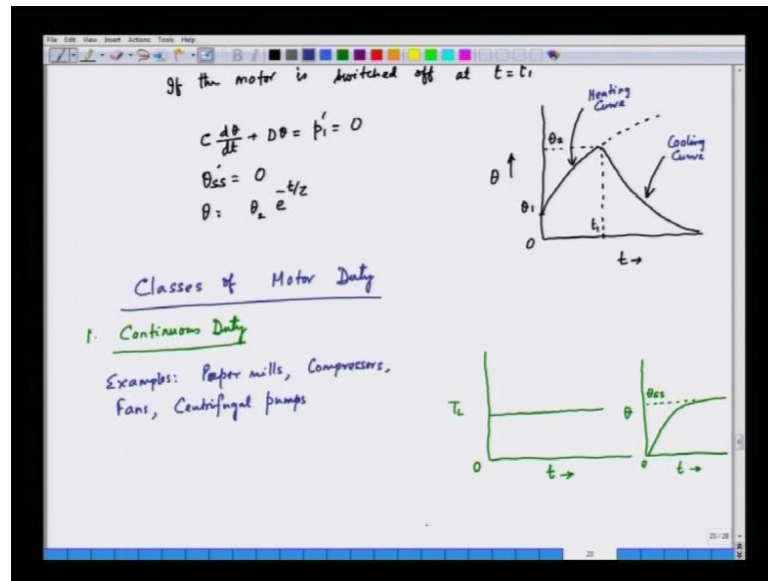 File Edit View Insert Actions Tools Help
If the motor is switched off at t = t₁
C dθ/dt + Dθ = p₁' = 0
θ'ss = 0
θ = θ₂ e^-t/τ
Heating Curve
Cooling Curve
θ₂
θ ↑
θ₁
t₁
0
t →
Classes of Motor Duty
1. Continuous Duty
Examples: Paper mills, Compressors,
Fans, Centrifugal pumps
TL
0
t →
θss
θ
0
t →
23/28
23